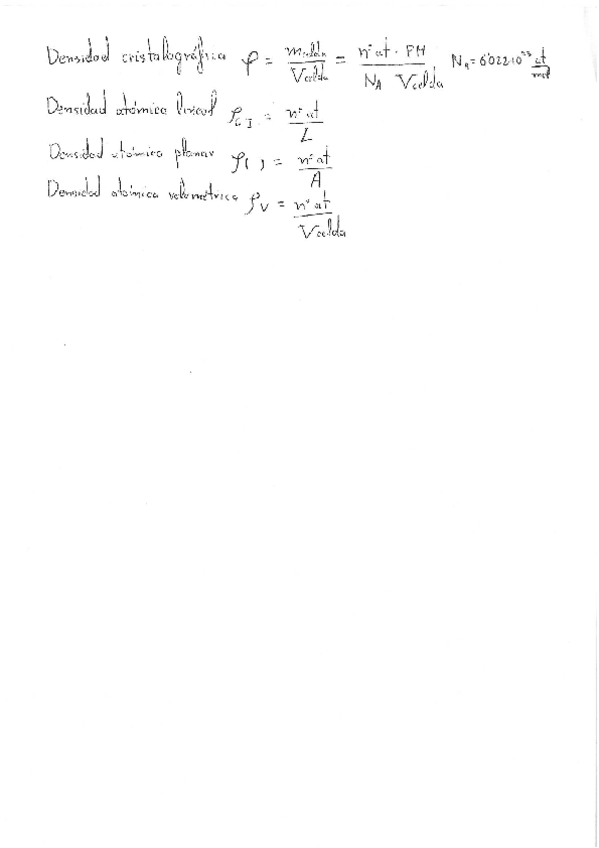 Densidad cristalográfica ρ = mcelda / Vcelda = nº at · PM / NA Vcelda NA = 6'022·10²³ at/mol
Densidad atómica lineal ρ[ ] = nº at / L
Densidad atómica planar ρ( ) = nº at / A
Densidad atómica volumétrica ρV = nº at / Vcelda